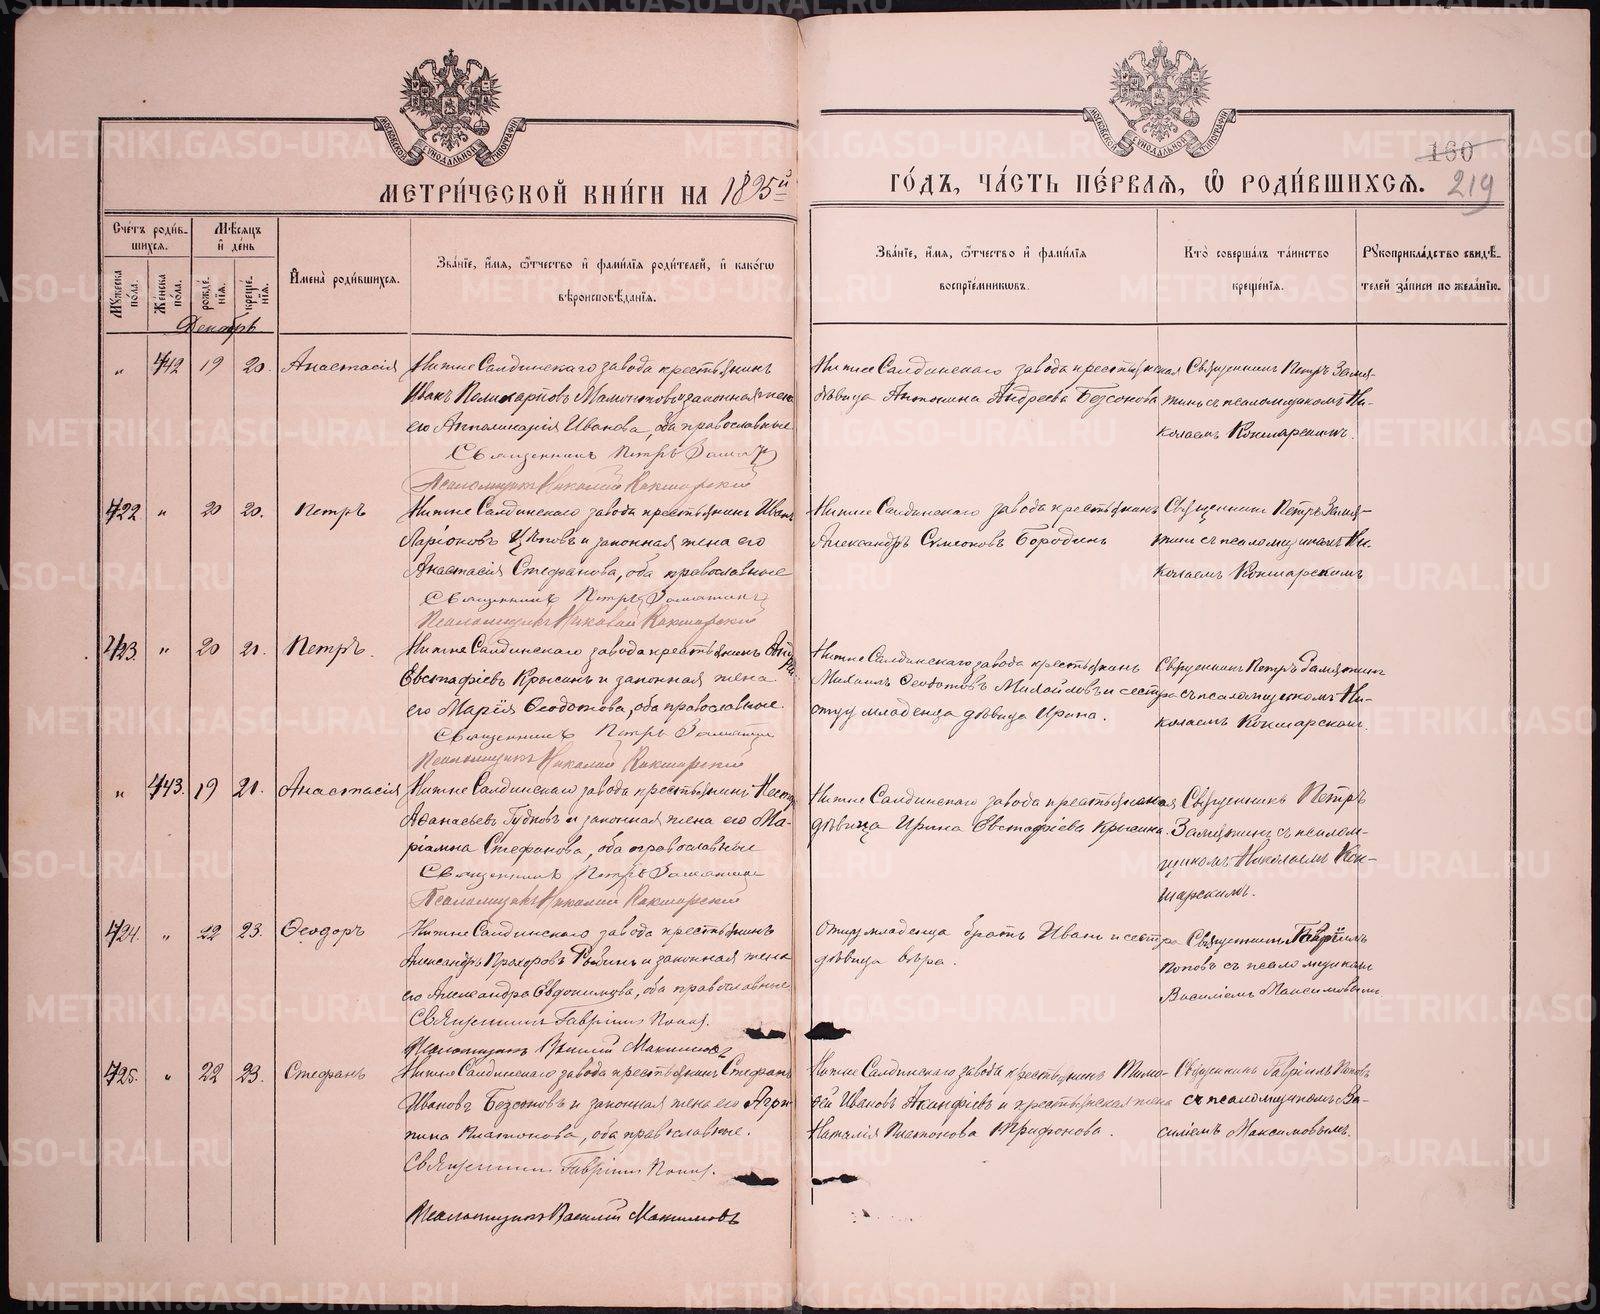 МЕТРИ́ЧЕСКОЙ КНИ́ГИ НА 1895й
ГО́ДЪ, ЧА́СТЬ ПЕ́РВАЯ, Ѡ РОДИ́ВШИХСЯ.
160
219
Сче́тъ роди́в-
шихся.
Мѣ́сяцъ
и́ де́нь
Му́жеска по́ла.
Же́нска по́ла.
рожде́-
нія.
креще́-
нія.
И҆мена̀ роди́вшихся.
Зва́ніе, и҆́мя, ѻ҆́тчество и҆ фами́лія роди́телей, и҆ како́гѡ
вѣроисповѣ́данія.
Зва́ніе, и҆́мя, ѻ҆́тчество и҆ фами́лія
воспріе́мниковъ.
Кто̀ соверша́лъ та́инство
креще́нія.
Рꙋкоприкла́дство свидѣ́-
телей за́писи по жела́нію.
Декабрь
" 442 19 20. Анастасія
Нижне Салдинскаго завода крестьянинъ
Иванъ Поликарповъ Мамонтовъ и законная жена
его Апполинарія Иванова, оба православные
Священникъ Петръ Замят
Псаломщикъ Николай Кокшарскій
Нижне Салдинскаго завода крестьянская
дѣвица Антонина Андреева Безсонова
Священникъ Петръ Замя-
тинъ съ псаломщикомъ Ни-
колаемъ Кокшарскимъ.
422 " 20 20. Петръ
Нижне Салдинскаго завода крестьянинъ Иванъ
Ларіоновъ Цѣповъ и законная жена его
Анастасія Стефанова, оба православные
Священникъ Петръ Замятинъ
Псаломщикъ Николай Кокшарскій
Нижне Салдинскаго завода крестьянинъ
Александръ Симеоновъ Бородинъ
Священникъ Петръ Замя-
тинъ съ псаломщикомъ Ни-
колаемъ Кокшарскимъ
423. " 20 21. Петръ.
Нижне Салдинскаго завода крестьянинъ Андрей
Евстафіевъ Крысинъ и законная жена
его Марія Ѳеодотова, оба православные.
Священникъ Петръ Замятин
Псаломщикъ Николай Кокшарскій
Нижне Салдинскаго завода крестьянинъ
Михаилъ Ѳеодотовъ Михайловъ и сестра
отцу младенца дѣвица Ирина.
Священникъ Петръ Замятинъ
съ псаломщикомъ Ни-
колаемъ Кокшарскимъ.
" 443. 19 21. Анастасія
Нижне Салдинскаго завода крестьянинъ Нестор
Аѳанасьевъ Гудковъ и законная жена его Ма-
ріамна Стефанова, оба православные
Священникъ Петръ Замятин
Псаломщикъ Николай Кокшарскій
Нижне Салдинскаго завода крестьянская
дѣвица Ирина Евстафіева Крысина.
Священникъ Петръ
Замятинъ съ псалом-
щикомъ Николаемъ Кок-
шарскимъ.
424. " 22 23. Ѳеодоръ
Нижне Салдинскаго завода крестьянинъ
Александръ Прохоровъ и законная жена
его Александра Евдокимова, оба православные.
Священникъ Гавріилъ Попов.
Псаломщикъ Василій Максимовъ
Отцу младенца братъ Иванъ и сестра
дѣвица Вѣра.
Священникъ Гавріилъ
Поповъ съ псаломщикомъ
Василіемъ Максимовымъ
425. " 22 23. Стефанъ
Нижне Салдинскаго завода крестьянинъ Стефанъ
Ивановъ Безсоновъ и законная жена его Агрип-
пина Платонова, оба православные.
Священникъ Гавріилъ Попов.
Псаломщикъ Василій Максимовъ
Нижне Салдинскаго завода крестьянинъ Тимо-
ѳей Ивановъ и крестьянская жена
Наталія Платонова Трифонова.
Священникъ Гавріилъ Поповъ
съ псаломщикомъ Ва-
силіемъ Максимовымъ.
METRIKI.GASO-URAL.RU